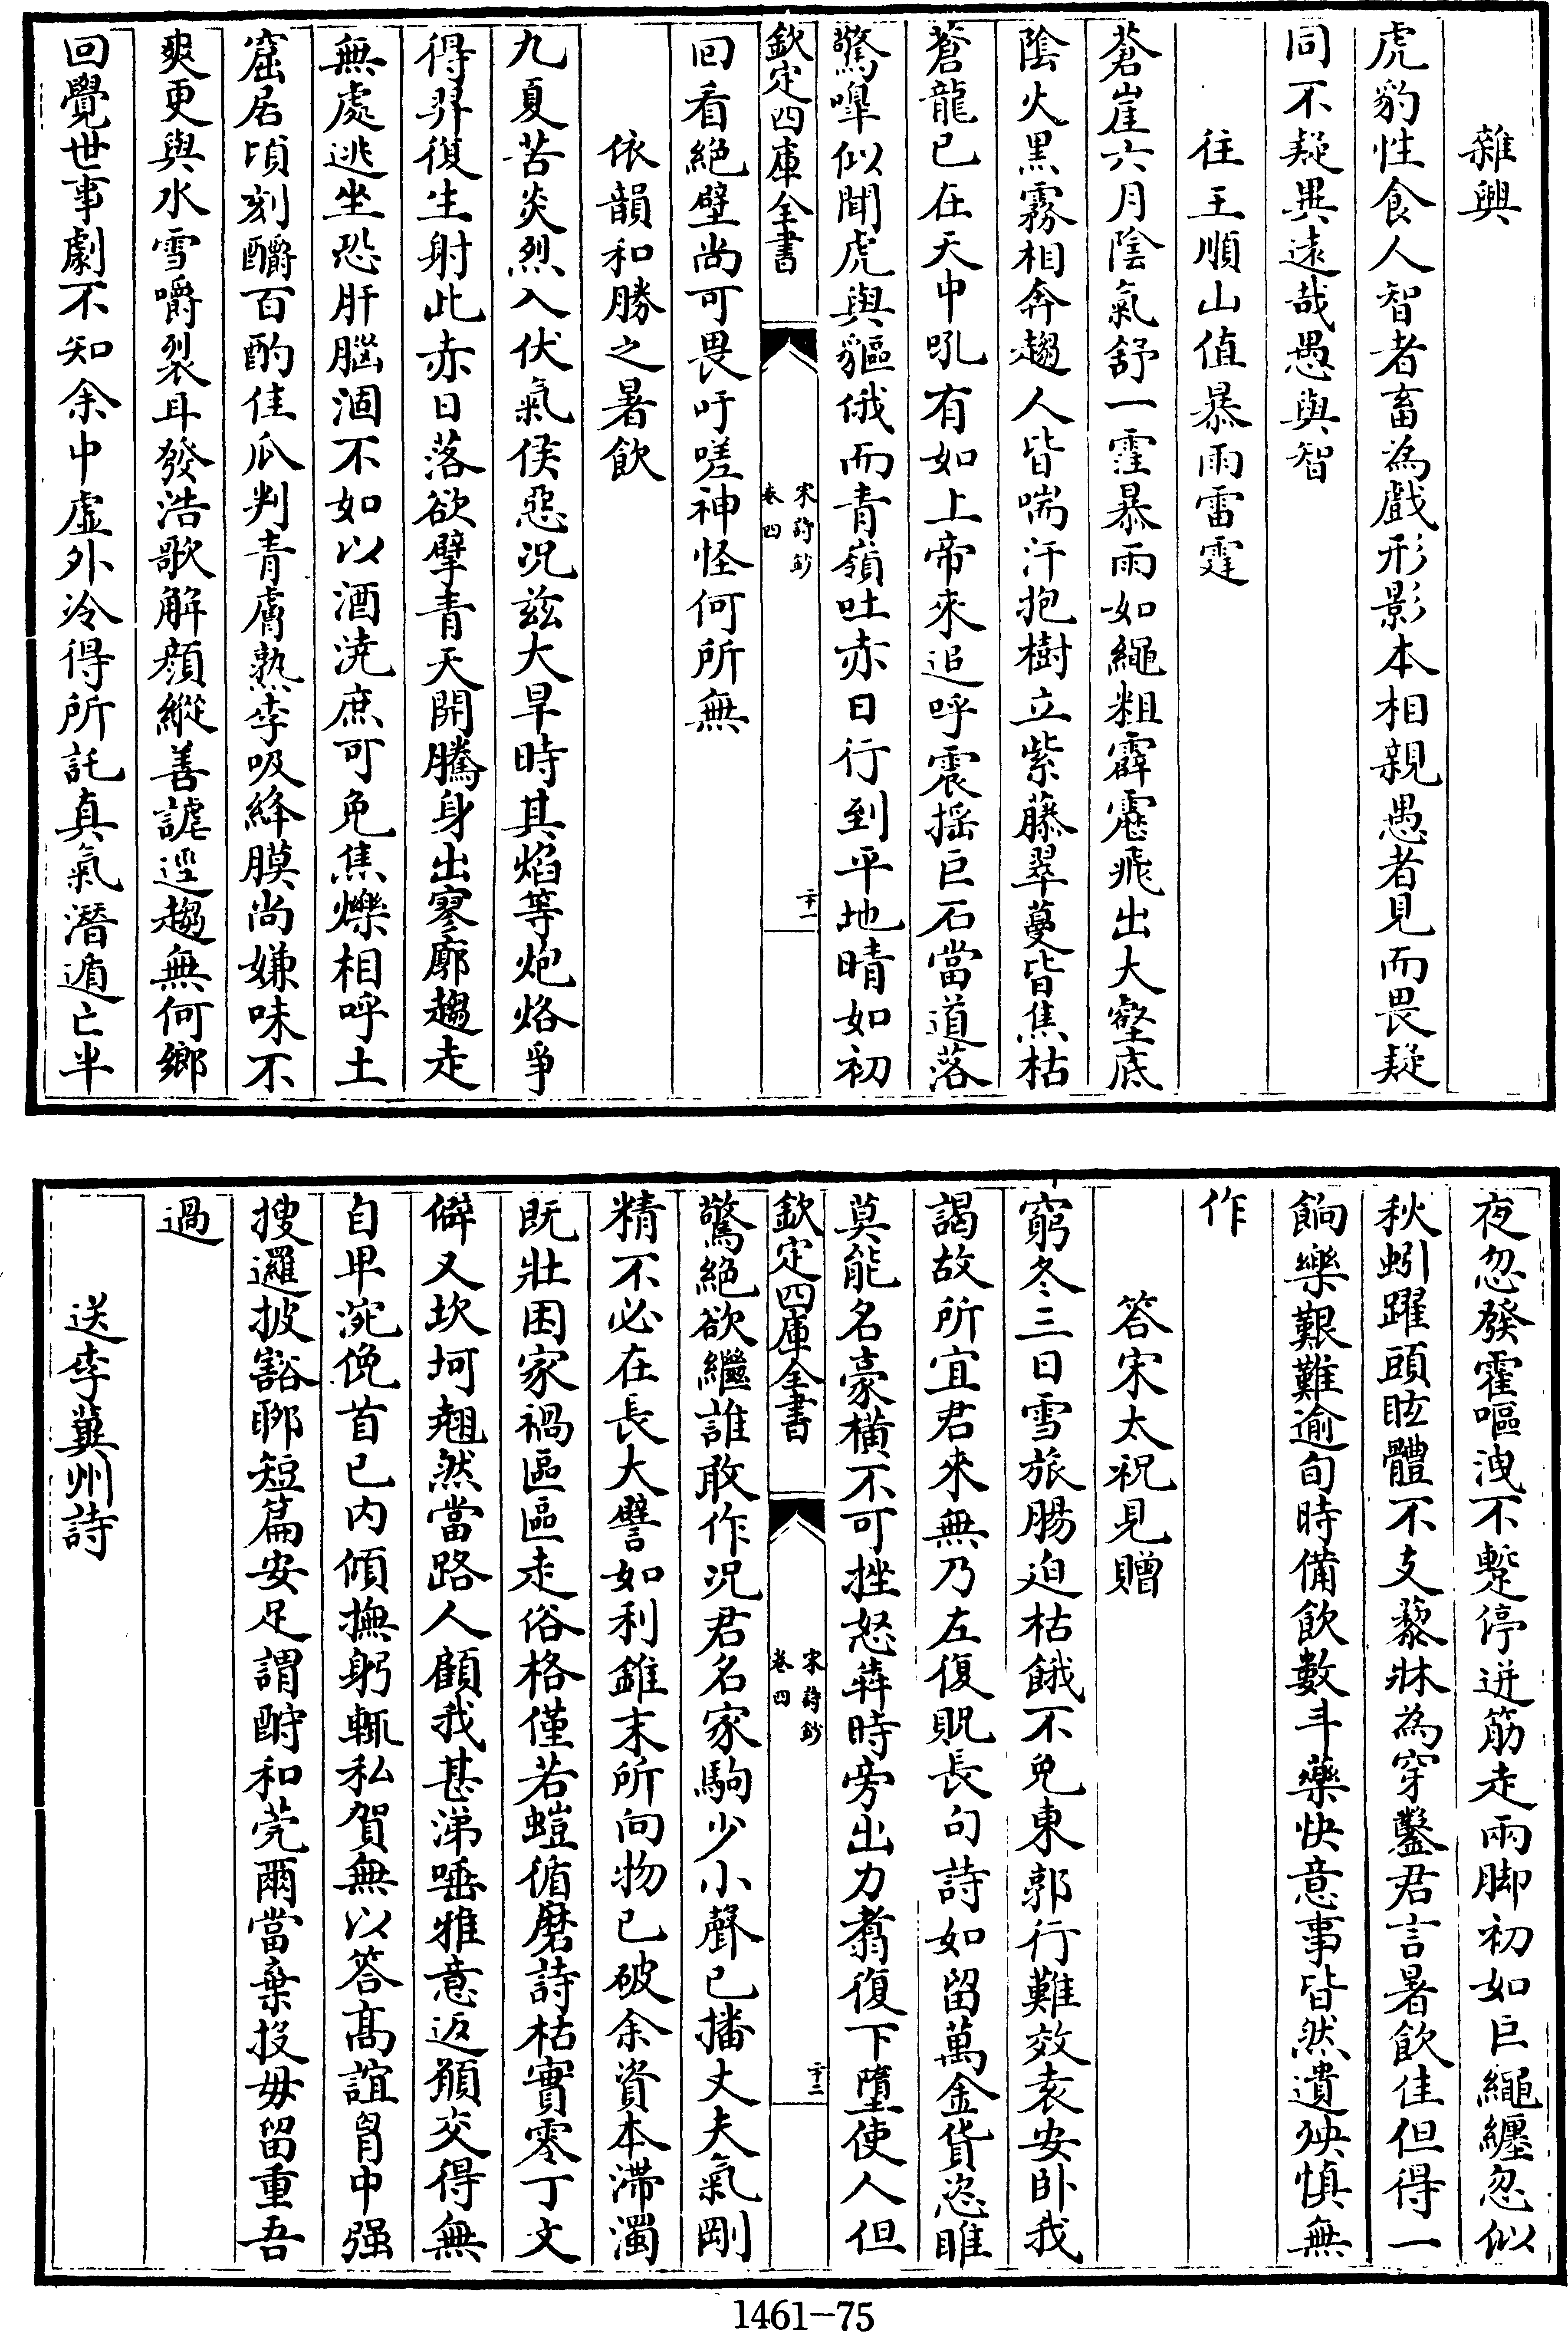 雜興
虎豹性食人智者畜為戲形影本相親愚者見而畏疑
同不疑異遠哉愚與智
往王順山值暴雨雷霆
蒼崖六月陰氣舒一霔暴雨如繩粗霹靂飛出大壑底
陰火黑霧相奔趨人皆喘汗抱樹立紫藤翠蔓皆焦枯
蒼龍已在天中吼有如上帝來追呼震揺巨石當道落
驚嘷似聞虎與貙俄而青嶺吐赤日行到平地晴如初
欽定四庫全書
宋詩鈔
卷四
二十一
回看絶壁尚可畏吁嗟神怪何所無
依韻和勝之暑飲
九夏苦炎烈入伏氣侯惡况兹大旱時其焰等炮烙爭
得羿復生射此赤日落欲擘青天開騰身出寥廓趨走
無處逃坐恐肝腦涸不如以酒澆庶可免焦爍相呼土
窟居頃刻釂百酌佳瓜判青膚熟李吸絳膜尚嫌味不
爽更與水雪嚼裂耳發浩歌解顔縱善謔逕趨無何鄉
回覺世事劇不知余中虚外冷得所託真氣潛遁亡半
夜忽發霍嘔洩不蹔停迸筋走兩脚初如巨繩纒忽似
秋蚓躍頭眩體不支藜牀為穿鑿君言暑飲佳但得一
餉樂艱難逾旬時備飲數斗藥快意事皆然遺殃慎無
作
答宋太祝見贈
窮冬三日雪旅腸迫枯餓不免東郭行難效袁安卧我
謁故所宜君來無乃左復貺長句詩如留萬金貨恣睢
莫能名豪横不可挫怒犇時旁出力翥復下墮使人但
欽定四庫全書
宋詩鈔
卷四
二十二
驚絶欲繼誰敢作况君名家駒少小聲已播丈夫氣剛
精不必在長大譬如利錐末所向物已破余資本滯濁
既壯困家禍區區走俗格僅若螘循磨詩枯實零丁文
僻又坎坷翹然當路人顧我甚涕唾雅意返願交得無
自卑涴俛首已内傾撫躬輒私賀無以答髙誼胷中强
搜邏披豁聊短篇安足謂酧和莞爾當棄投毋留重吾
過
送李冀州詩
1461-75